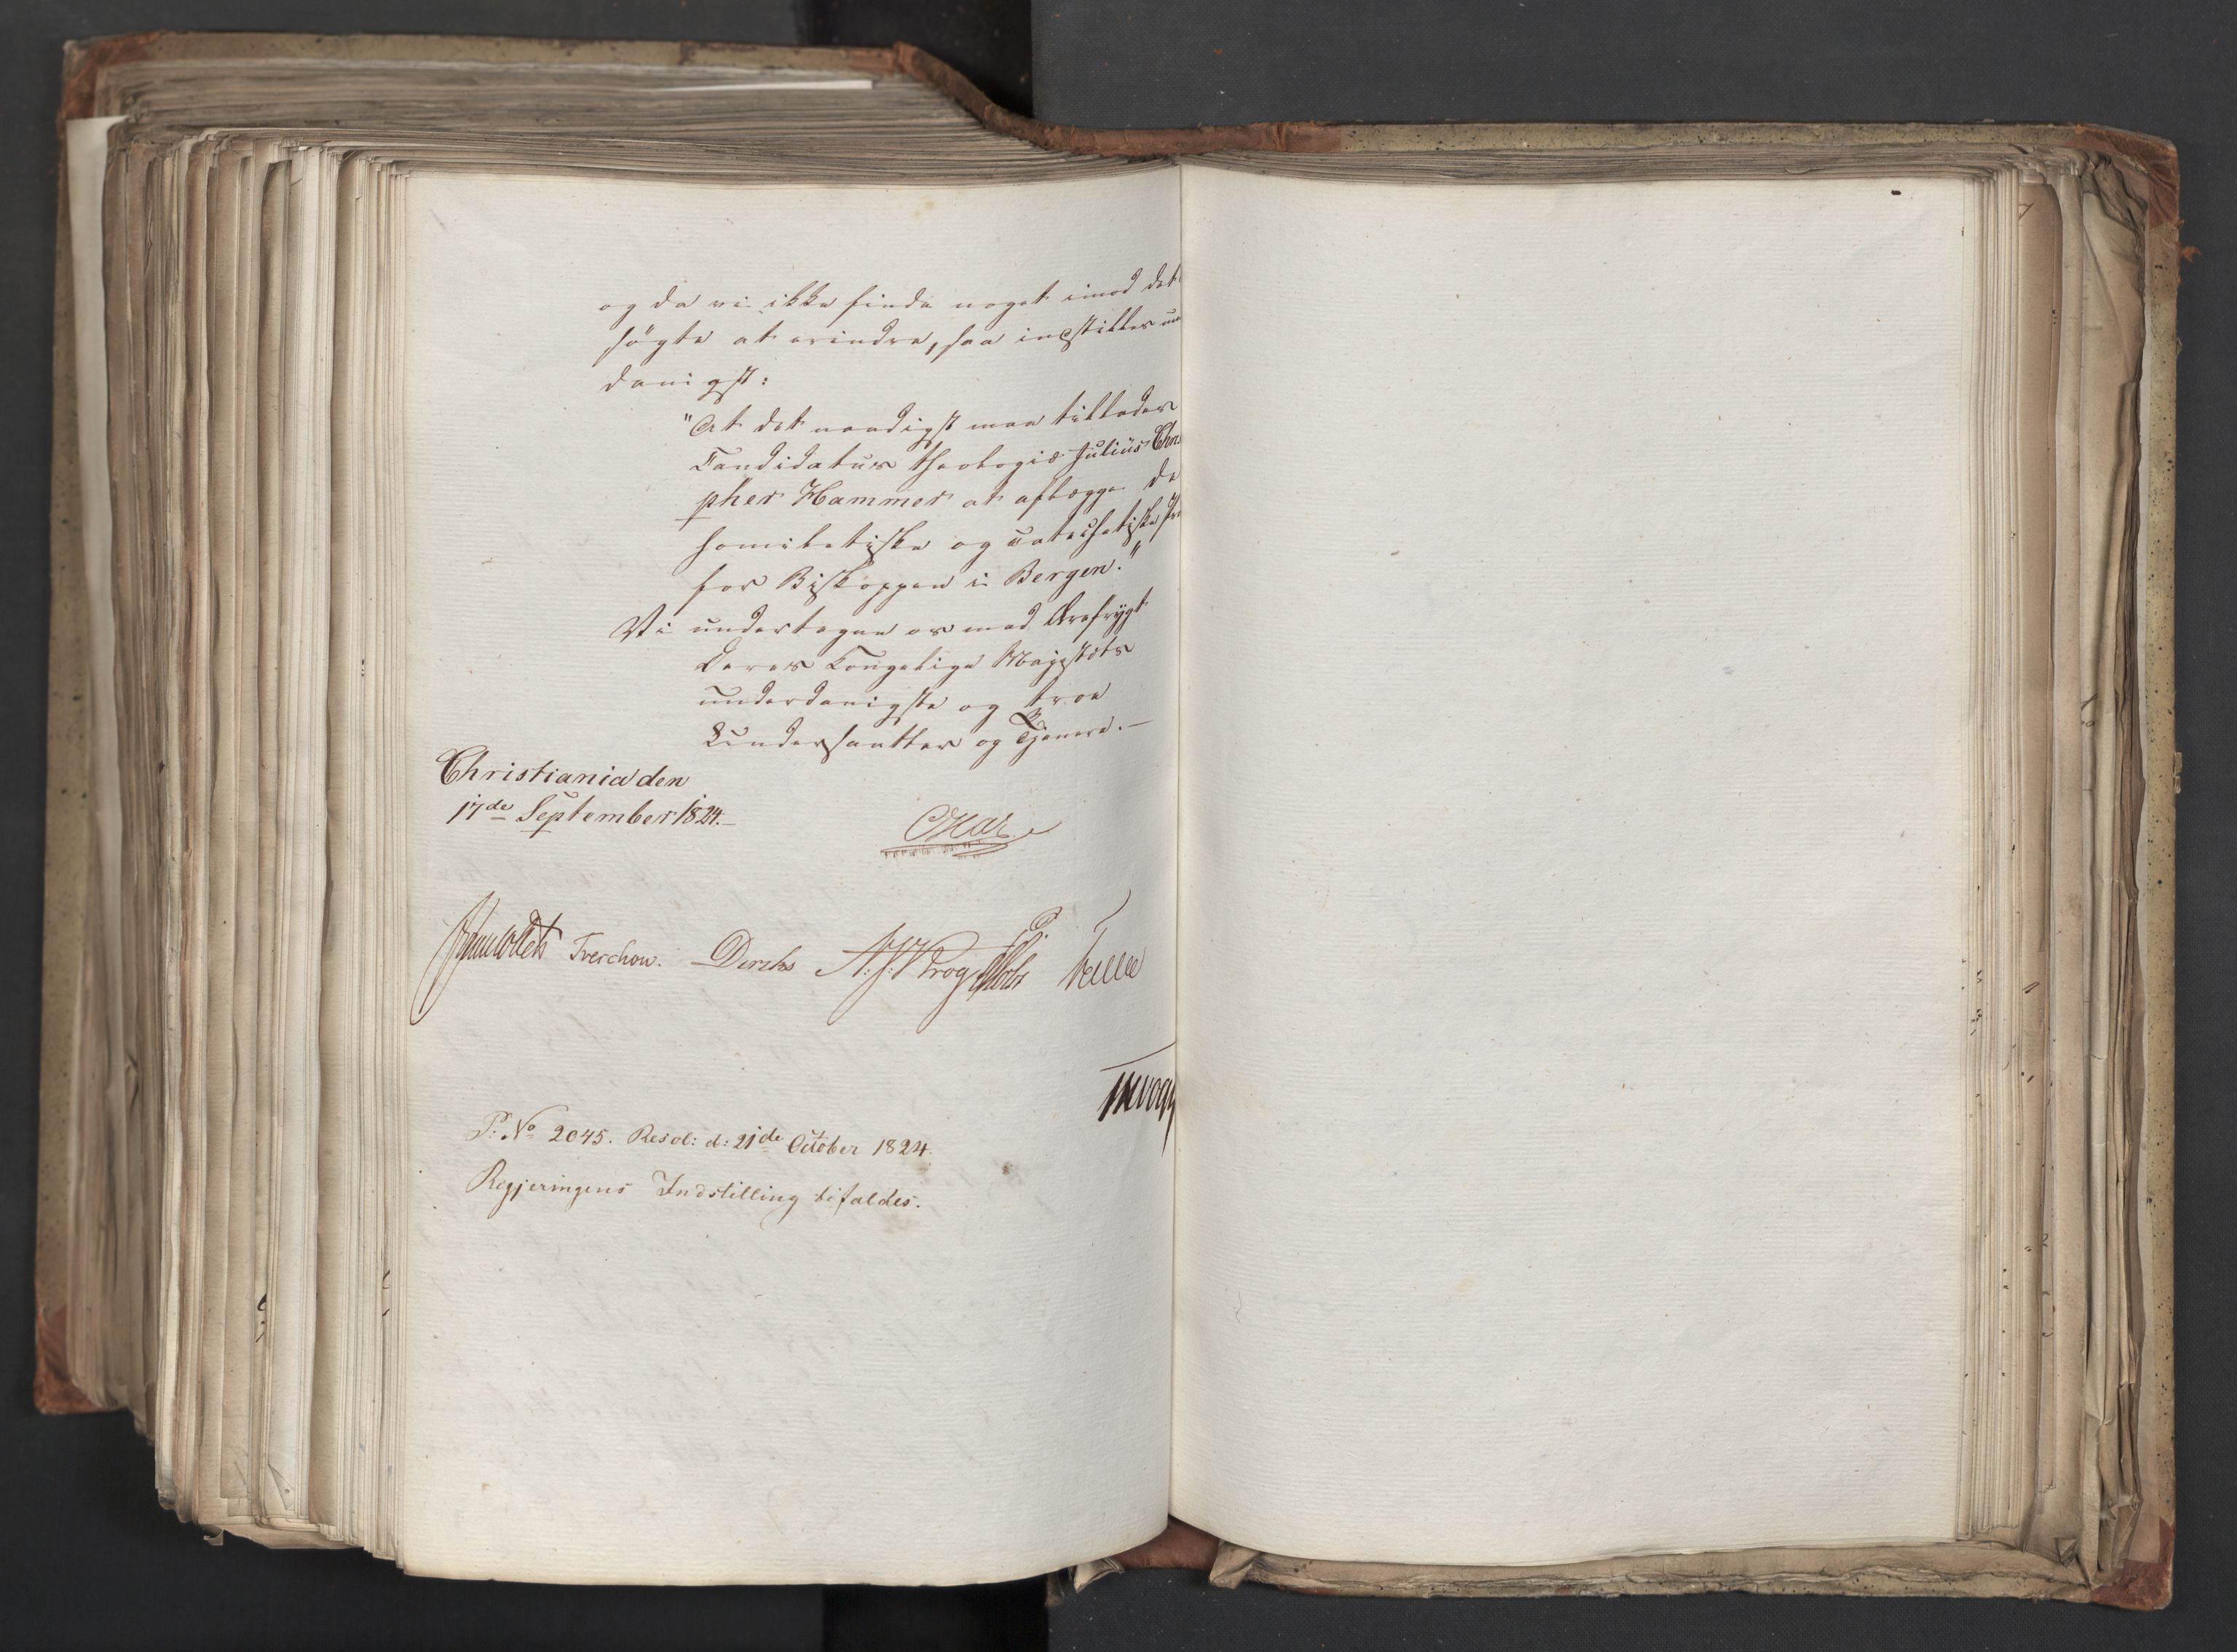 og da vi ikke finde noget imod det
søgte at erindre, saa indstilles un
danigst:
"At det naadigst maa tillades
Candidatus theologiæ Julius Chri
pher Hammer at aflægge de
homiletiske og catechetiske Pr
for Biskoppen i Bergen."
Vi undertegne os med Ærefrygt
Deres Kongelige Majestæts
underdanigste og troe
Undersaatter og Tjenere.—
Christiania den
17de September 1824.—
Jonas Collett Treschow. Diriks
P: No 2045. Resol: d: 21de October 1824.
Regjeringens Indstilling bifaldes.